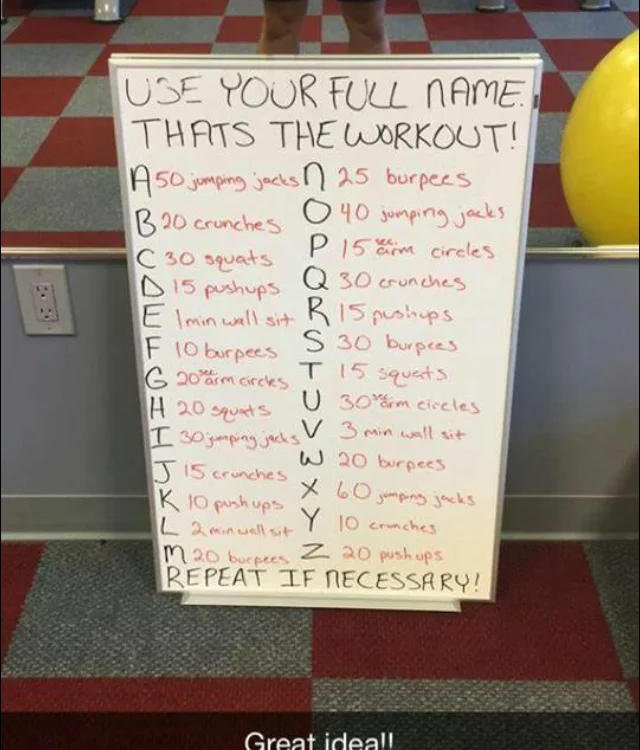 USE YOUR FULL NAME.
THATS THE WORKOUT!
A 50 jumping jacks
B 20 crunches
C 30 squats
D 15 pushups
E 1 min wall sit
F 10 burpees
G 20 sec arm circles
H 20 squats
I 30 jumping jacks
J 15 crunches
K 10 pushups
L 2 min wall sit
M 20 burpees
N 25 burpees
O 40 jumping jacks
P 15 sec arm circles
Q 30 crunches
R 15 pushups
S 30 burpees
T 15 squats
U 30 sec arm circles
V 3 min wall sit
W 20 burpees
X 60 jumping jacks
Y 10 crunches
Z 20 pushups
REPEAT IF NECESSARY!
Great idea!!